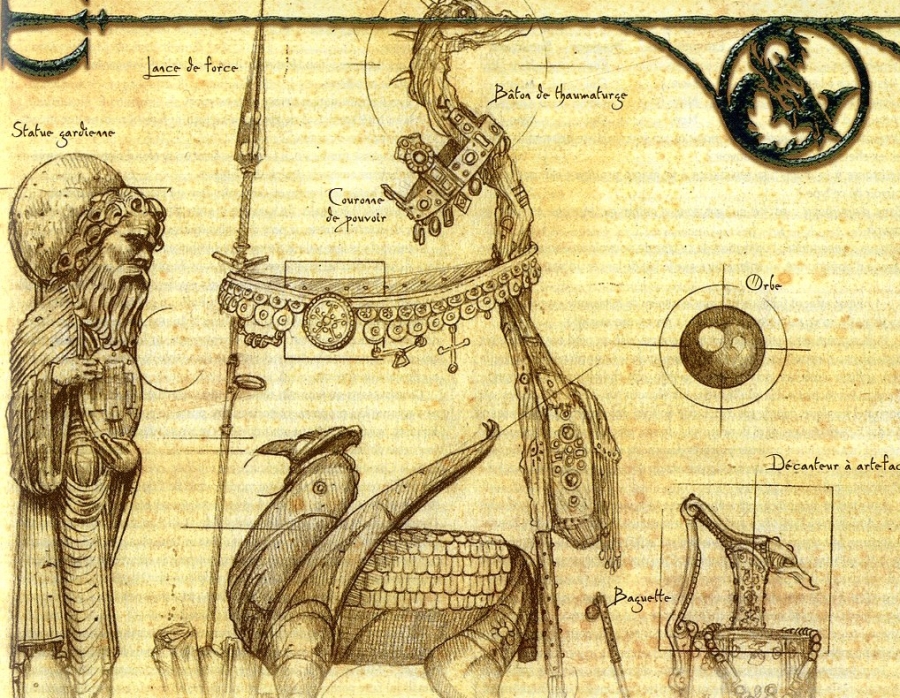 Lance de force
Bâton de thaumaturge
Statue gardienne
Couronne
de pouvoir
Orbe
Décanteur à artefac
Baguette